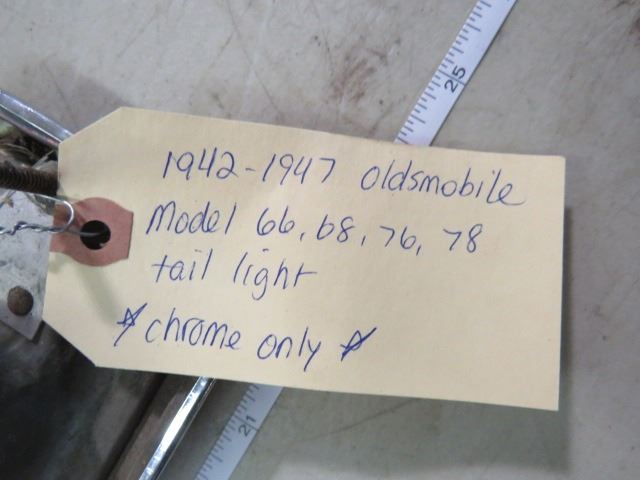 1942-1947 Oldsmobile
Model 66, 68, 76, 78
tail light
* chrome only *
25
21